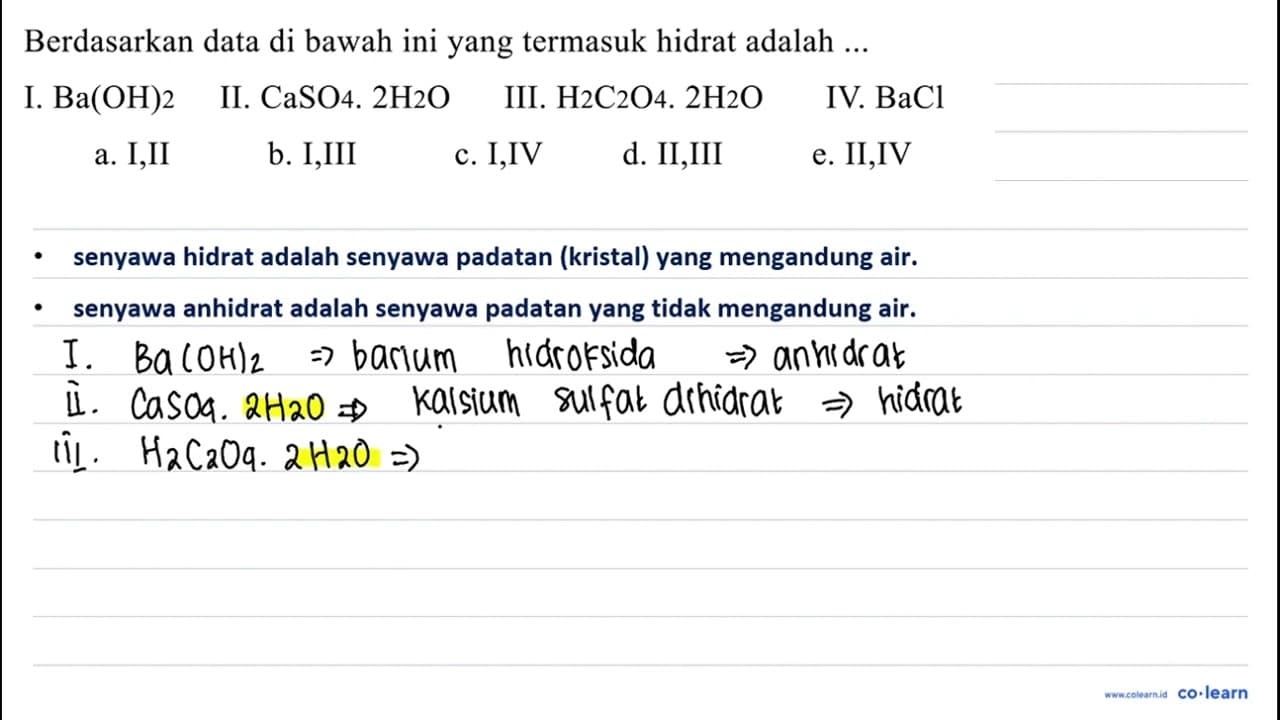 Berdasarkan data di bawah ini yang termasuk hidrat adalah ...
I. Ba(OH)2 II. CaSO4. 2H2O III. H2C2O4. 2H2O IV. BaCl
a. I,II b. I,III c. I,IV d. II,III e. II,IV
• senyawa hidrat adalah senyawa padatan (kristal) yang mengandung air.
• senyawa anhidrat adalah senyawa padatan yang tidak mengandung air.
I. Ba(OH)2 => barium hidroksida => anhidrat
II. CaSO4. 2H2O => kalsium sulfat dihidrat => hidrat
III. H2C2O4. 2H2O =>
www.colearn.id co·learn